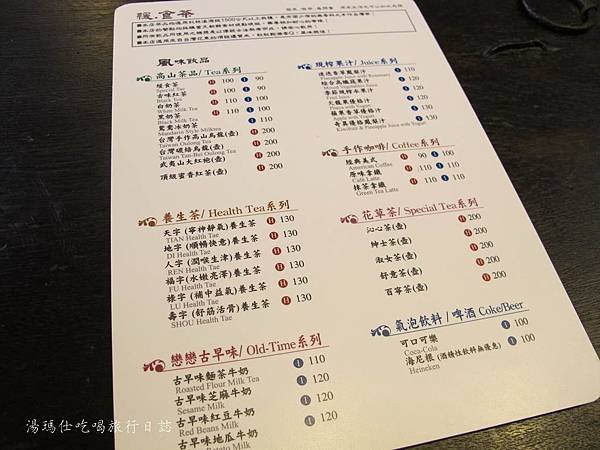 暖.食茶
風味飲品
高山茶品/Tea系列
暖食茶 H 100 I 90
Special Tea
古味紅茶 H 100 I 90
Black Tea
白奶茶 H 110 I 100
White Milk Tea
黑奶茶 H 110 I 100
Black Milk Tea
鴛鴦冰奶茶 I 110
Mandarin Style Milktea
台灣手作高山烏龍(壺) H 200
Taiwan Oolong Tea
台灣碳焙烏龍(壺) H 200
Taiwan Tan-Bei Oolong Tea
武夷山大紅袍(壺) H 200
頂級蜜香紅茶(壺) H 200
養生茶/Health Tea系列
天字(寧神靜氣)養生茶 H 130
TIAN Health Tae
地字(順暢快意)養生茶 H 130
DI Health Tae
人字(潤喉生津)養生茶 H 130
REN Health Tae
福字(水嫩亮澤)養生茶 H 130
FU Health Tae
祿字(補中益氣)養生茶 H 130
LU Health Tae
壽字(舒筋活骨)養生茶 H 130
SHOU Health Tae
戀戀古早味/Old-Time系列
古早味麵茶牛奶 I 110
Roasted Flour Milk Tea
古早味芝麻牛奶 I 120
Sesame Milk
古早味紅豆牛奶 I 120
Red Beans Milk
古早味地瓜牛奶 I 120
Potato Milk
現榨果汁/Juice系列
迷迭香草鳳梨汁 I 110
Pineapple Juice with Rosemary
綜合高纖蔬果汁 I 120
Mixed Vegetables Juice
季節鮮榨水果汁 I 120
Fruit Juice
火龍果優格汁 I 120
Pitaya with Yogurt
蘋果香草優格汁 I 120
Apple Juice with Yogurt
奇異優格鳳梨汁 I 120
Kiwifruit & Pineapple Juice with Yogurt
手作咖啡/Coffee系列
經典美式 H 90 I 100
American Coffee
原味拿鐵 H /110 I 110
Café Latte
抹茶拿鐵 H 110 I 110
Green Tea Latte
花草茶/Special Tea系列
沁心茶(壺) H 200
紳士茶(壺) H 200
淑女茶(壺) H 200
舒意茶(壺) H 200
百寧茶(壺) H 200
氣泡飲料/啤酒 Coke/Beer
可口可樂 I 100
Coca-Cola
海尼根(酒精性飲料無優惠) I 100
Heineken
湯瑪仕吃喝旅行日誌